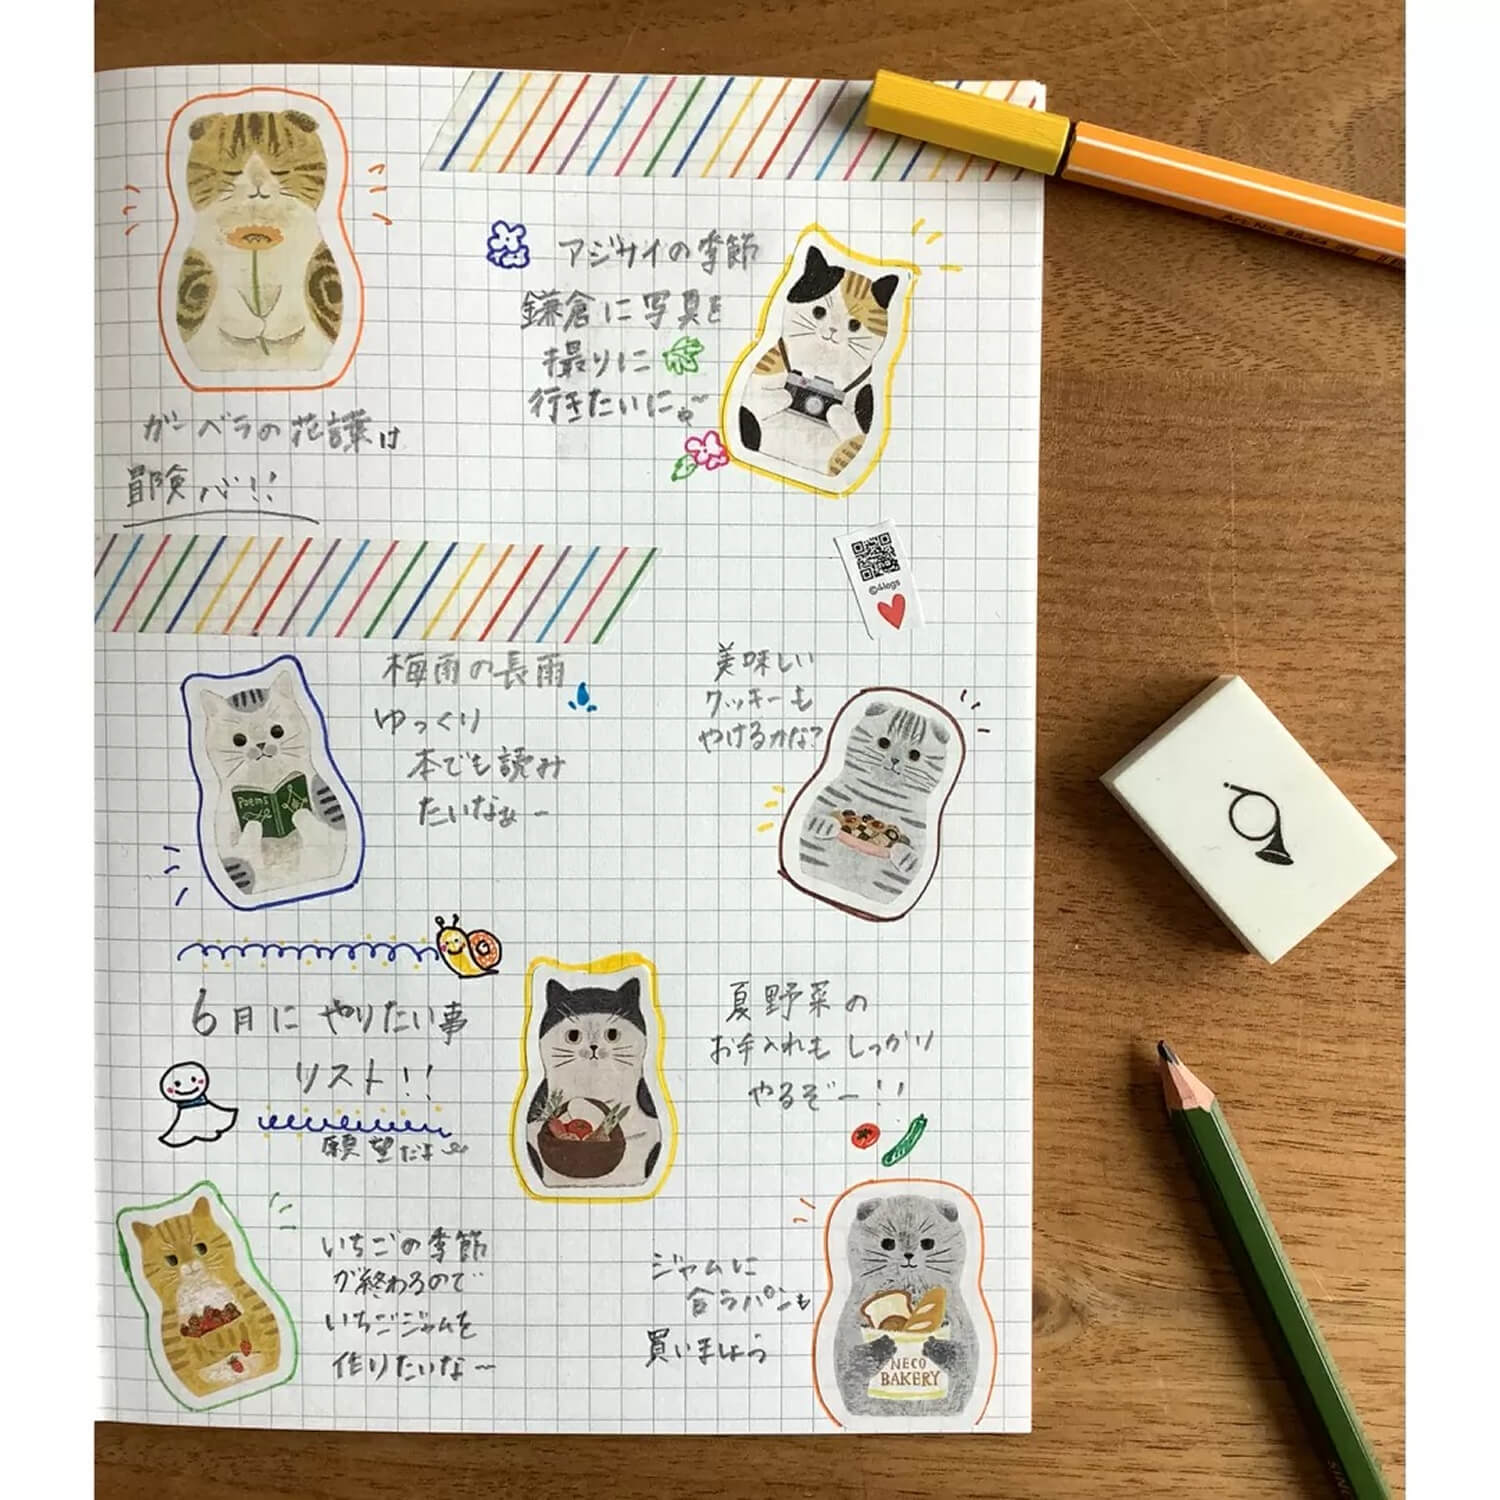 アジサイの季節
鎌倉に写真を
撮りに
行きたいに。
ガーベラの花言葉は
冒険心!!
©4legs
梅雨の長雨
ゆっくり
本でも読み
たいなぁー
Poems
美味しい
クッキーも
やけるかな?
6月に やりたい事
リスト!!
願望だよ
夏野菜の
お手入れも しっかり
やるぞー!!
いちごの季節
が終わるので
いちごジャムを
作りたいな〜
ジャムに
合うパンも
買いましょう
NECO
BAKERY